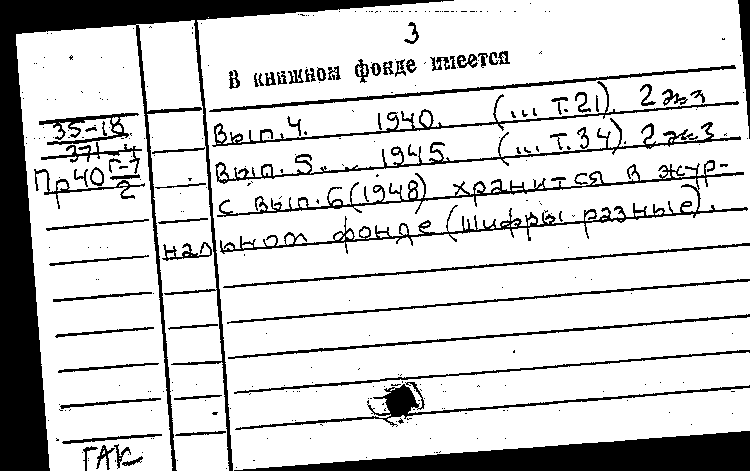 3
В книжном фонде имеется
35-18
371-4
Вып. 4. 1940. (... т. 21). 2 экз
Пр40 Г-7
2
Вып. 5... 1945. (... т. 34). 2 экз.
с вып. 6 (1948) хранится в жур-
нальном фонде (шифры разные).
ГАК